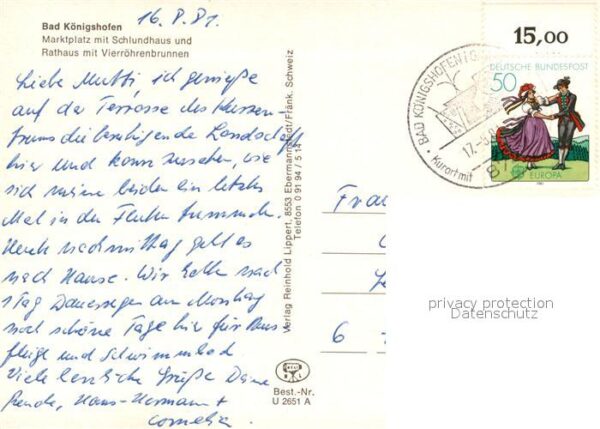 16.8.81.
Bad Königshofen
Marktplatz mit Schlundhaus und
Rathaus mit Vierröhrenbrunnen
Liebe Mutti, ich genieße
auf der Terrasse des Kurzen-
trums die beruhigende Landschaft
hier und kann zusehen, wie
sich meine beiden ein letztes
Mal in den Fluten tummeln.
Heute nachmittag geht es
nach Hause. Wir hatten nach
1 Tag Dauerregen am Montag
noch schöne Tage hier für Aus-
flüge und Schwimmbad.
Viele herzliche Grüße Deine
Hans-Hermann +
Cornelia
Verlag Reinhold Lippert, 8553 Ebermannstadt/Fränk. Schweiz
Telefon 0 91 94 / 5 14
Best.-Nr.
U 2651 A
15,00
DEUTSCHE BUNDESPOST
50
EUROPA
BAD KÖNIGSHOFEN
17.-8.
Kurort mit
Frau
6
privacy protection
Datenschutz